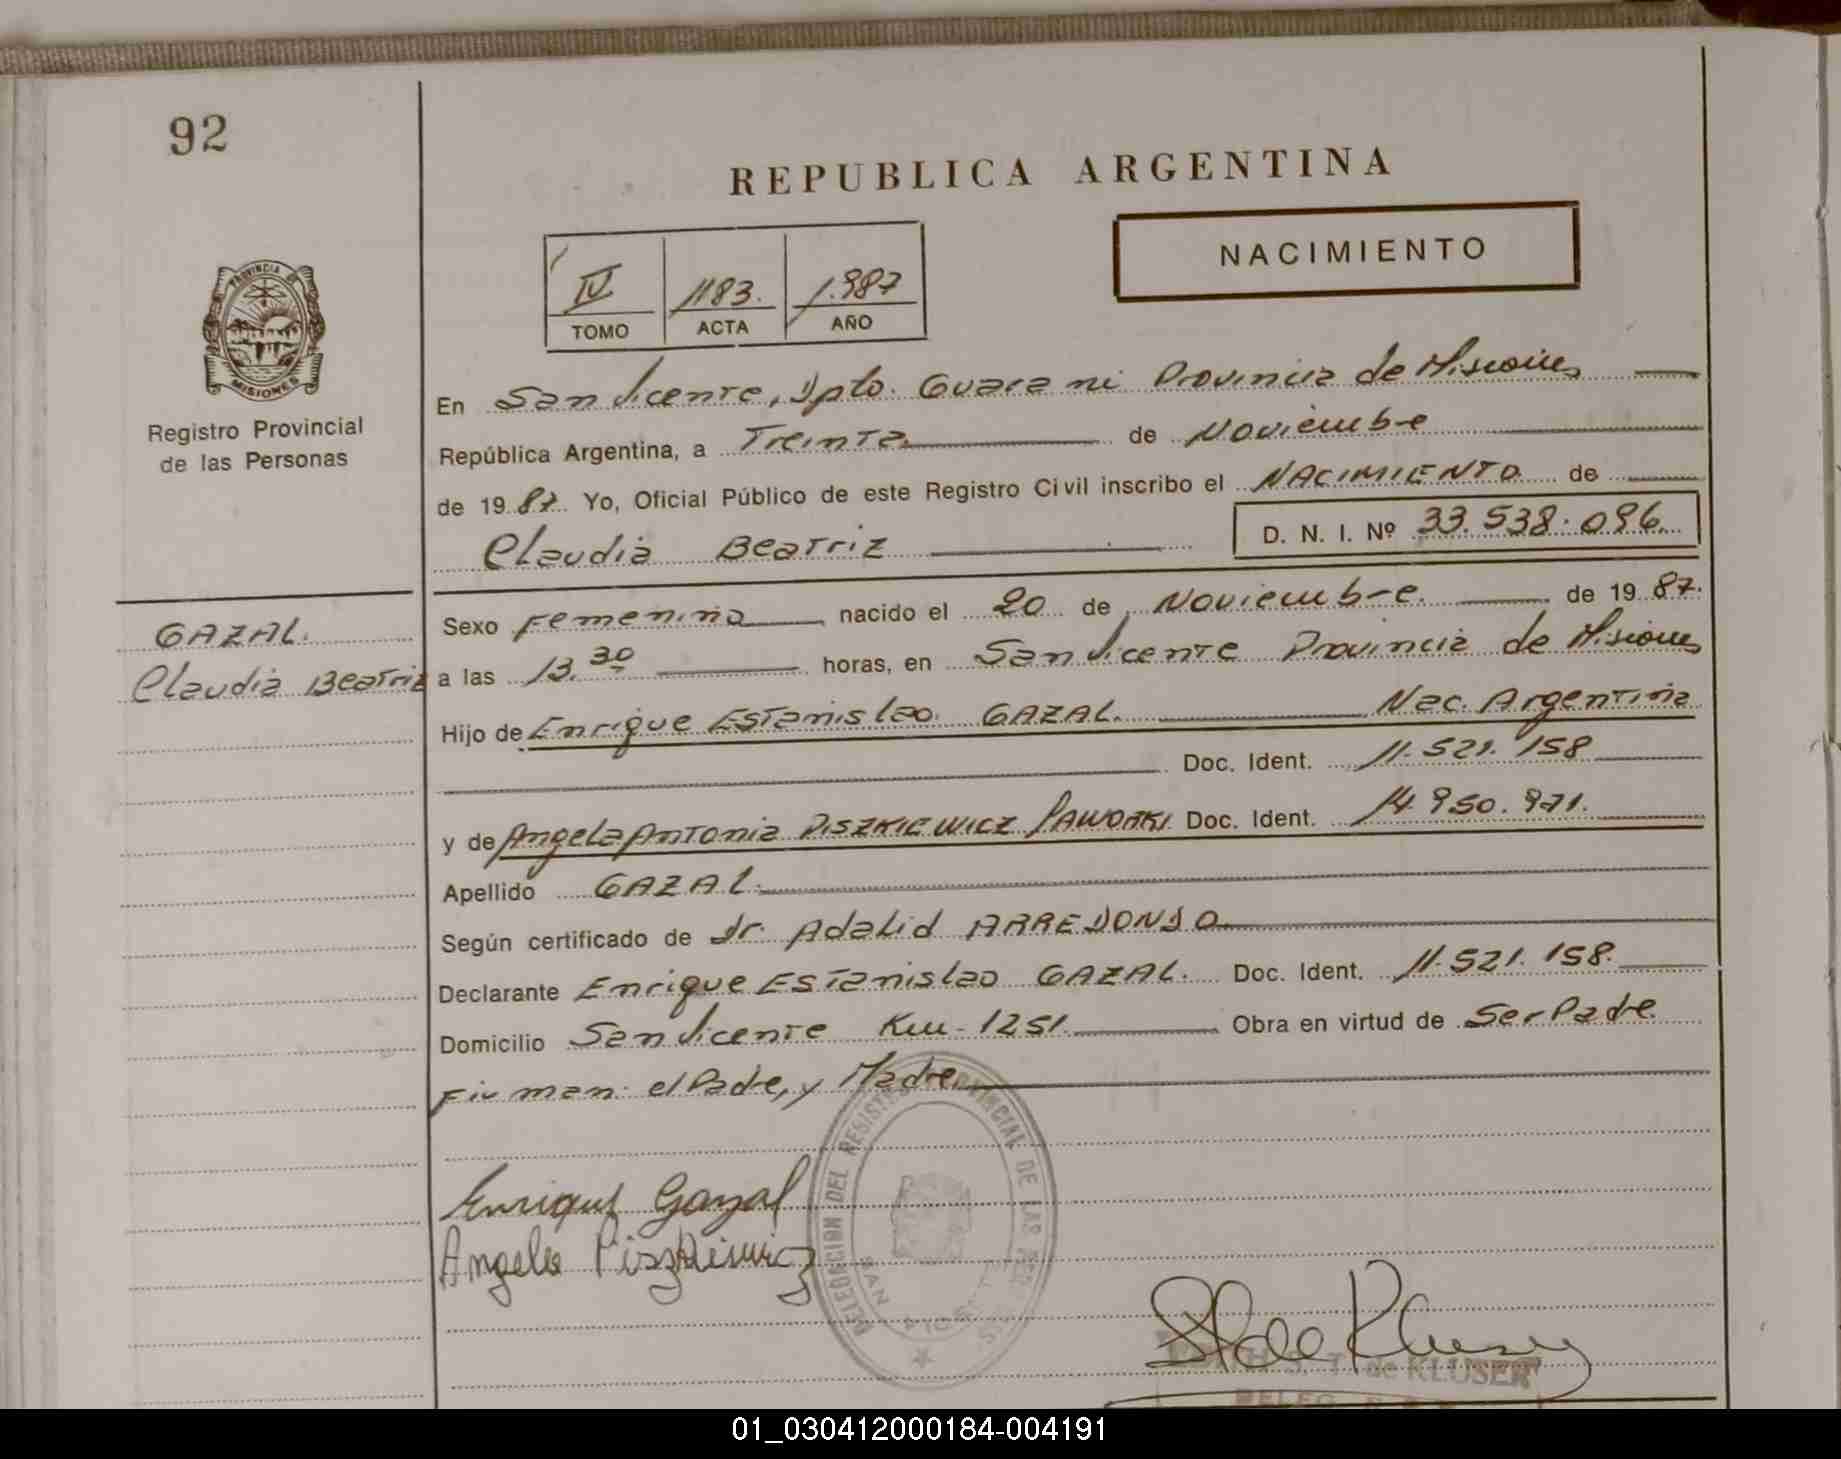 92
REPUBLICA ARGENTINA
NACIMIENTO
IV 1183. 1.987
TOMO ACTA AÑO
PROVINCIA DE
MISIONES
Registro Provincial
de las Personas
En San Vicente, Dpto. Guarani Provincia de Misiones
República Argentina, a Treinta de Noviembre
de 1987 Yo, Oficial Público de este Registro Civil inscribo el NACIMIENTO de
Claudia Beatriz D. N. I. Nº 33.538.096
GAZAL.
Claudia Beatriz
Sexo Femenino nacido el 20 de Noviembre. de 1987.
a las 13.30 horas, en San Vicente Provincia de Misiones
Hijo de Enrique Estanislao GAZAL. Nac. Argentina
Doc. Ident. 11.521.158
y de Angela Antonia PISZKIEWICZ Doc. Ident. 14.950.971.
Apellido GAZAL.
Según certificado de Dr. Adalid ARREDONDO
Declarante Enrique Estanislao GAZAL. Doc. Ident. 11.521.158.
Domicilio San Vicente Km-1251. Obra en virtud de Ser Padre
Firman: el Padre, y Madre.
DELEGACION DEL REGISTRO PROVINCIAL DE LAS
SAN
Enrique Gazal
Angela Piszkiewicz
de Kluser
T. de KLUSER
01_030412000184-004191